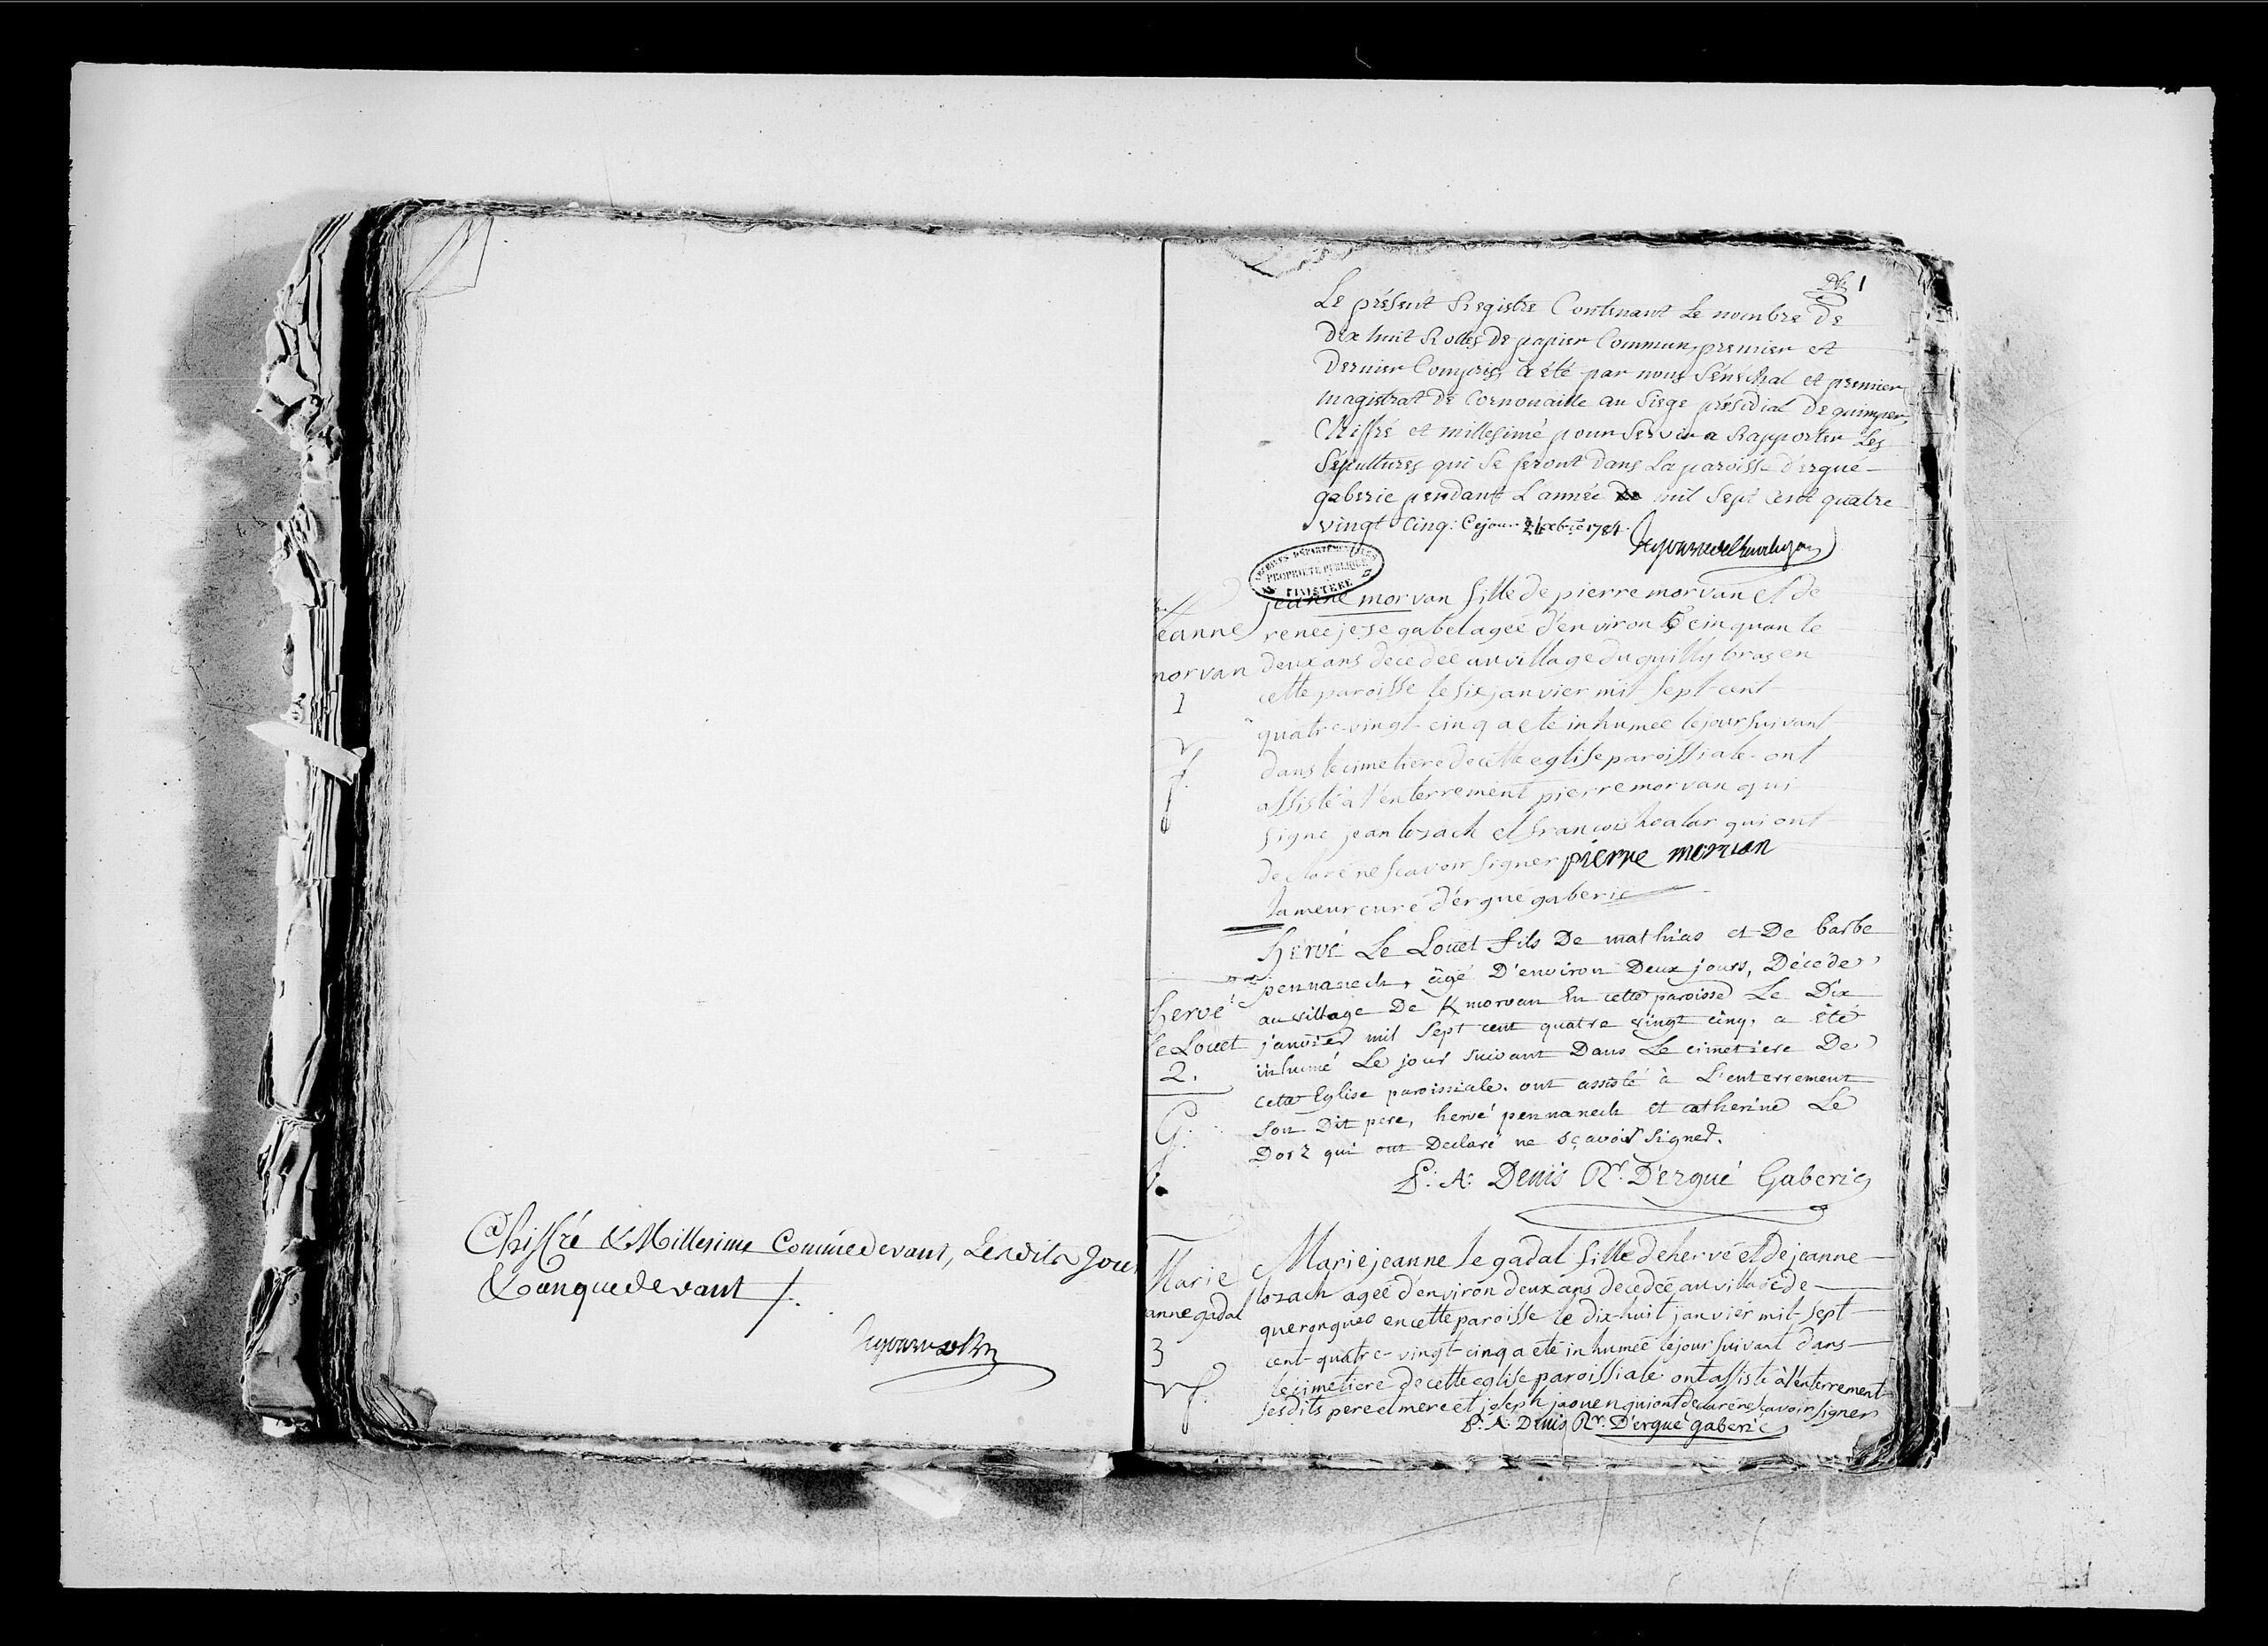 Chiffré & Millesime Comme devant, Lesdits Jour
& an que devant /.
1
Le présent Registre Contenant Le nombre De
Dix huit Rolles De papier Commun, premier et
Dernier Compris, a été par nous Sénéchal et premier
Magistrat De Cornouaille au Siege présidial De quimper,
Chiffré et millesimé pour Servir a Rapporter Les
Sépultures qui Se feront Dans La paroisse d'ergué-
gaberic pendant L'année De mil Sept Cent quatre
vingt Cinq: Ce jour xbre 1784.
ARCHIVES DÉPARTEMENTALES
PROPRIÉTÉ PUBLIQUE
FINISTÈRE
jeanne morvan fille de pierre morvan et de
eanne
renée jese gabel agée d'environ cinquante
morvan
deux ans decedée au village du quilly bras en
1
cette paroisse le six janvier mil sept-cent
quatre-vingt-cinq a eté inhumée le jour suivant
dans le cimetiere de cette eglise paroissiale. ont
assisté à l'enterrement pierre morvan qui
signe jean lozach et françois healar qui ont
declaré ne scavoir signer pierre morvan
lameur curé d'ergué gaberic
hervé Le Louet fils De mathias et De barbe
pennanech, âgé D'environ Deux jours, Décédé
hervé
au village De K morvan En cette paroisse Le Dix
le Louet
janvier mil Sept cent quatre vingt cinq, a été
2.
inhumé Le jour suivant Dans Le cimetiere De
cette Eglise paroissiale. ont assisté à L'enterrement
G.
Son Dit pere, hervé pennanech et catherine Le
Dorz qui ont Declaré ne sçavoir signer.
F: A: Denis Rr. D'ergué Gaberic
Marie jeanne le gadal fille de hervé et de jeanne
Marie
lozach agée d'environ deux ans decedée au village de
anne gadal
queronguéo en cette paroisse le dix-huit janvier mil-sept
3
cent-quatre-vingt-cinq a eté inhumée le jour suivant dans
le cimetiere de cette eglise paroissiale ont assisté à l'enterrement
sesdits pere et mere et joseph jaouen qui ont declaré ne scavoir signer
F: A: Denis Rr. D'ergué gaberic